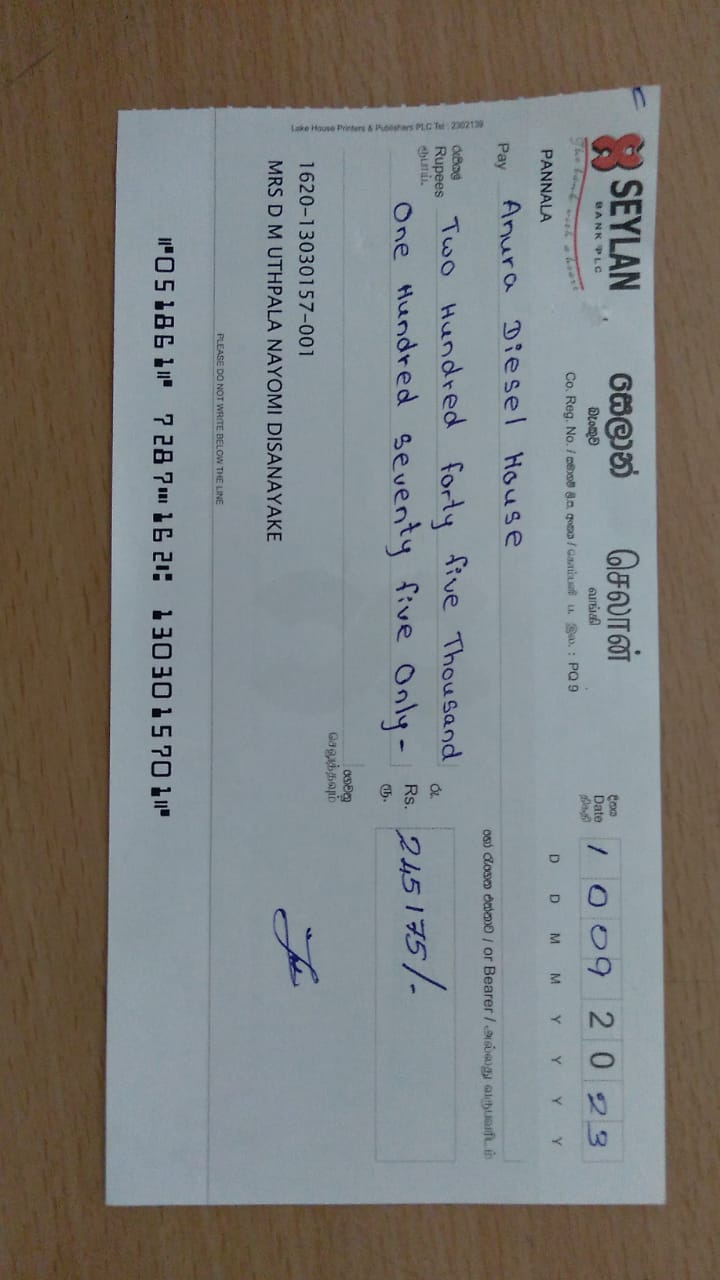 SEYLAN
BANK PLC
The bank with a heart
සෙලාන්
බැංකුව
செலான்
வங்கி
PANNALA
Co. Reg. No. / PQ 9
දිනය
Date
திகதி
1 0 0 9 2 0 2 3
D D M M Y Y Y Y
Pay Anura Diesel House
හෝ රැගෙන එන්නාට / or Bearer / அல்லது
රුපියල්
Rupees
ரூபாய்
Two Hundred forty five Thousand
One Hundred seventy five Only -
රු.
Rs.
ரூ.
245175/-
1620-13030157-001
MRS D M UTHPALA NAYOMI DISANAYAKE
Lake House Printers & Publishers PLC Tel : 2302139
PLEASE DO NOT WRITE BELOW THE LINE
⑈051861⑈ 7287⑉162⑆ 1303015701⑈